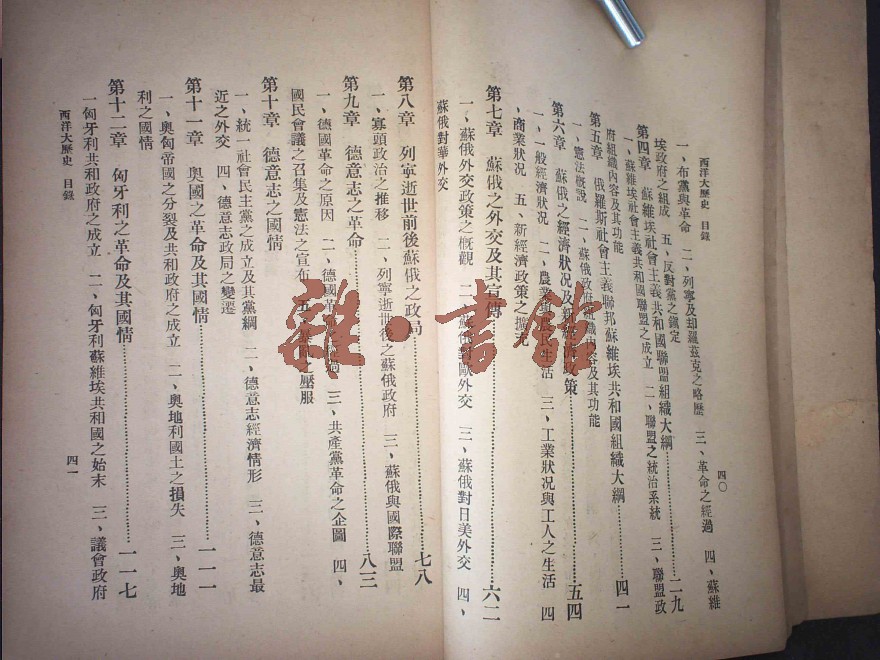 西洋大歷史 目錄
四〇
一、布黨與革命 二、列寧及却羅茲克之略歷 三、革命之經過 四、蘇維
埃政府之組成 五、反對黨之鎮定
第四章 蘇維埃社會主義共和國聯盟組織大綱………二九
一、蘇維埃社會主義共和國聯盟之成立 二、聯盟之統治系統 三、聯盟政
府組織內容及其功能
第五章 俄羅斯社會主義聯邦蘇維埃共和國組織大綱………四一
一、憲法概說 二、蘇俄政府組織內容及其功能
第六章 蘇俄之經濟狀況及新經濟政策………五四
一、一般經濟狀況 二、農業與農民生活 三、工業狀況與工人之生活 四
、商業狀況 五、新經濟政策之
第七章 蘇俄之外交及其宣傳………六二
一、蘇俄外交政策之概觀 二、蘇俄對歐外交 三、蘇俄對日美外交 四、
蘇俄對華外交
第八章 列寧逝世前後蘇俄之政局………七八
一、寡頭政治之推移 二、列寧逝世後之蘇俄政府 三、蘇俄與國際聯盟
第九章 德意志之革命………八三
一、德國革命之原因 二、德國革 三、共產黨革命之企圖 四、
國民會議之召集及憲法之宣布 五、之壓服
第十章 德意志之國情
一、統一社會民主黨之成立及其黨綱 二、德意志經濟情形 三、德意志最
近之外交 四、德意志政局之變遷
第十一章 奧國之革命及其國情………一一一
一、奧匈帝國之分裂及共和政府之成立 二、奧地利國土之損失 三、奧地
利之國情
第十二章 匈牙利之革命及其國情………一一七
一匈牙利共和政府之成立 二、匈牙利蘇維埃共和國之始末 三、議會政府
西洋大歷史 目錄
四一
雜·書館